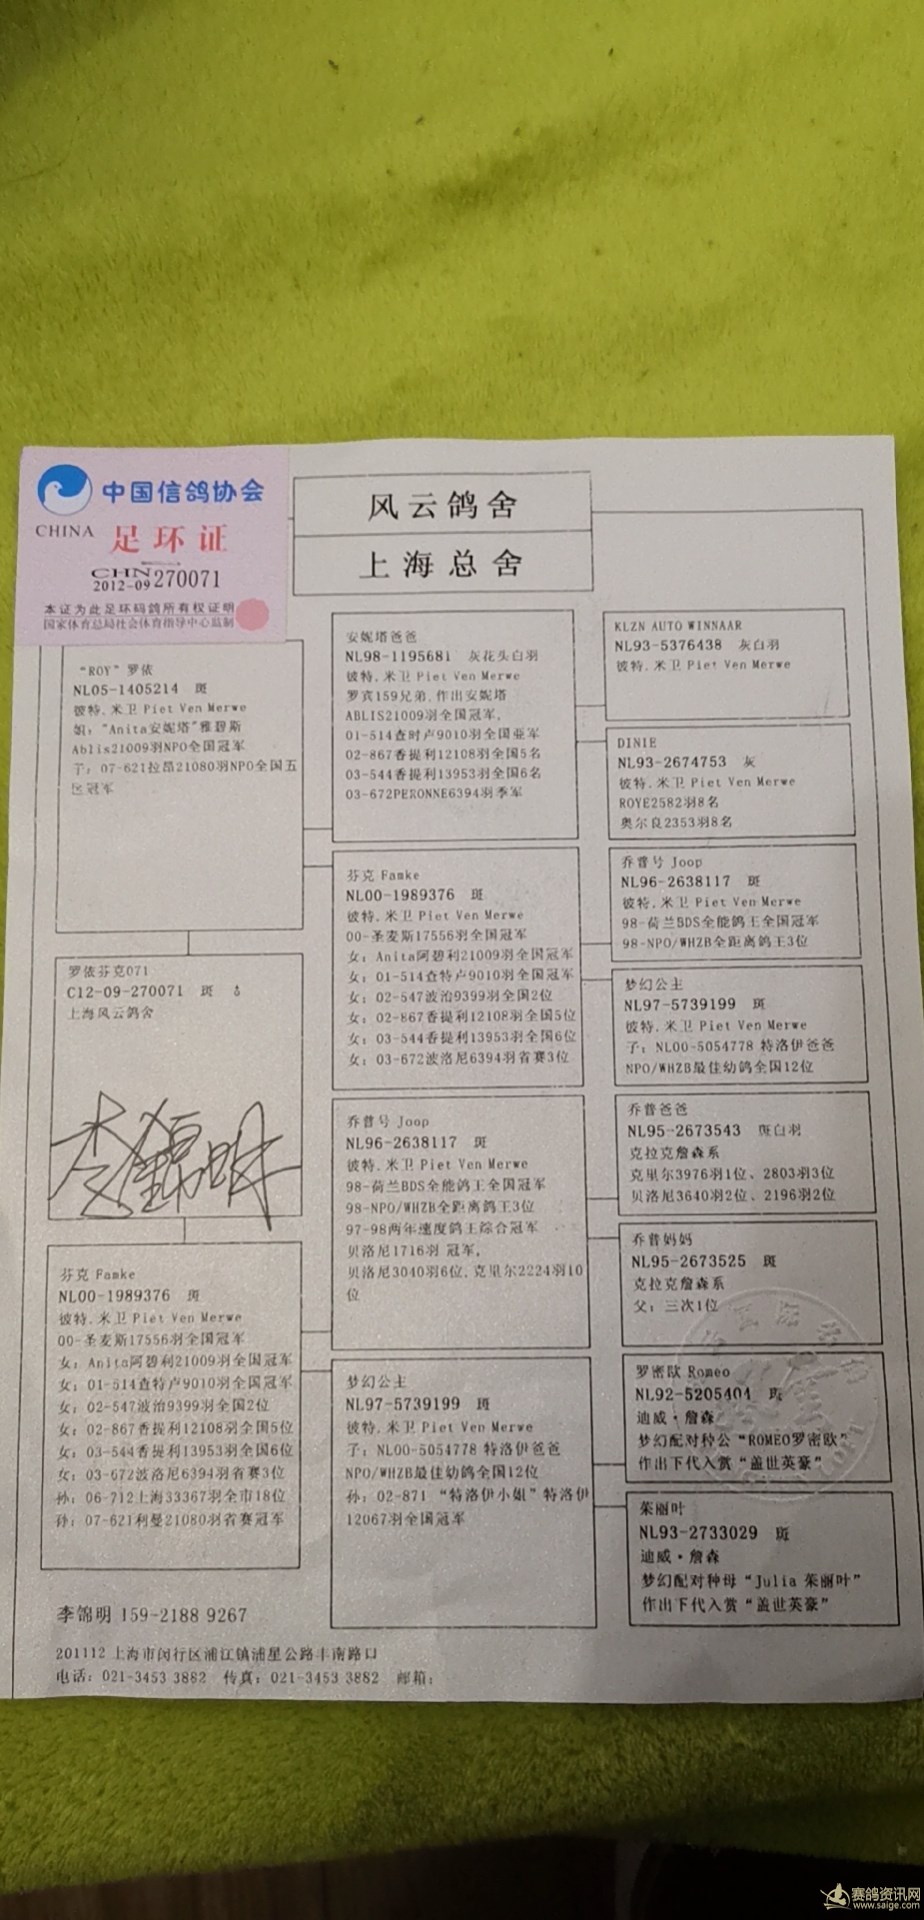 中国信鸽协会
CHINA 足环证
CHN
2012-09 270071
本证为此足环码鸽所有权证明
国家体育总局社会体育指导中心监制
风云鸽舍
上海总舍
“ROY”罗依
NL05-1405214 斑
彼特.米卫 Piet Ven Merwe
姐：“Anita安妮塔”雅碧斯
Ablis21009羽NPO全国冠军
子：07-621拉昂21080羽NPO全国五
区冠军
罗依芬克071
C12-09-270071 斑 ♂
上海风云鸽舍
李锦明
芬克 Famke
NL00-1989376 斑
彼特.米卫 Piet Ven Merwe
00-圣麦斯17556羽全国冠军
女：Anita阿碧利21009羽全国冠军
女：01-514查特卢9010羽全国冠军
女：02-547波治9399羽全国2位
女：02-867香提利12108羽全国5位
女：03-544香提利13953羽全国6位
女：03-672波洛尼6394羽省赛3位
孙：06-712上海33367羽全市18位
孙：07-621利曼21080羽省赛冠军
安妮塔爸爸
NL98-1195681 灰花头白羽
彼特.米卫 Piet Ven Merwe
罗宾159兄弟.作出安妮塔
ABLIS21009羽全国冠军.
01-514查时卢9010羽全国亚军
02-867香提利12108羽全国5名
03-544香提利13953羽全国6名
03-672PERONNE6394羽季军
芬克 Famke
NL00-1989376 斑
彼特.米卫 Piet Ven Merwe
00-圣麦斯17556羽全国冠军
女：Anita阿碧利21009羽全国冠军
女：01-514查特卢9010羽全国冠军
女：02-547波治9399羽全国2位
女：02-867香提利12108羽全国5位
女：03-544香提利13953羽全国6位
女：03-672波洛尼6394羽省赛3位
乔普号 Joop
NL96-2638117 斑
彼特.米卫 Piet Ven Merwe
98-荷兰BDS全能鸽王全国冠军
98-NPO/WHZB全距离鸽王3位
97-98两年速度鸽王综合冠军
贝洛尼1716羽 冠军.
贝洛尼3040羽6位.克里尔2224羽10
位
梦幻公主
NL97-5739199 斑
彼特.米卫 Piet Ven Merwe
子：NL00-5054778 特洛伊爸爸
NPO/WHZB最佳幼鸽全国12位
孙：02-871 “特洛伊小姐”特洛伊
12067羽全国冠军
KLZN AUTO WINNAAR
NL93-5376438 灰白羽
彼特.米卫 Piet Ven Merwe
DINIE
NL93-2674753 灰
彼特.米卫 Piet Ven Merwe
ROYE2582羽8名
奥尔良2353羽8名
乔普号 Joop
NL96-2638117 斑
彼特.米卫 Piet Ven Merwe
98-荷兰BDS全能鸽王全国冠军
98-NPO/WHZB全距离鸽王3位
梦幻公主
NL97-5739199 斑
彼特.米卫 Piet Ven Merwe
子：NL00-5054778 特洛伊爸爸
NPO/WHZB最佳幼鸽全国12位
乔普爸爸
NL95-2673543 斑白羽
克拉克詹森系
克里尔3976羽1位、2803羽3位
贝洛尼3640羽2位、2196羽2位
乔普妈妈
NL95-2673525 斑
克拉克詹森系
父：三次1位
罗密欧 Romeo
NL92-5205404 斑
迪威·詹森
梦幻配对种公“ROMEO罗密欧”
作出下代入赏“盖世英豪”
茱丽叶
NL93-2733029 斑
迪威·詹森
梦幻配对种母“Julia 茱丽叶”
作出下代入赏“盖世英豪”
李锦明 159-2188 9267
201112 上海市闵行区浦江镇浦星公路丰南路口
电话：021-3453 3882 传真：021-3453 3882 邮箱：
赛鸽资讯网
www.saige.com